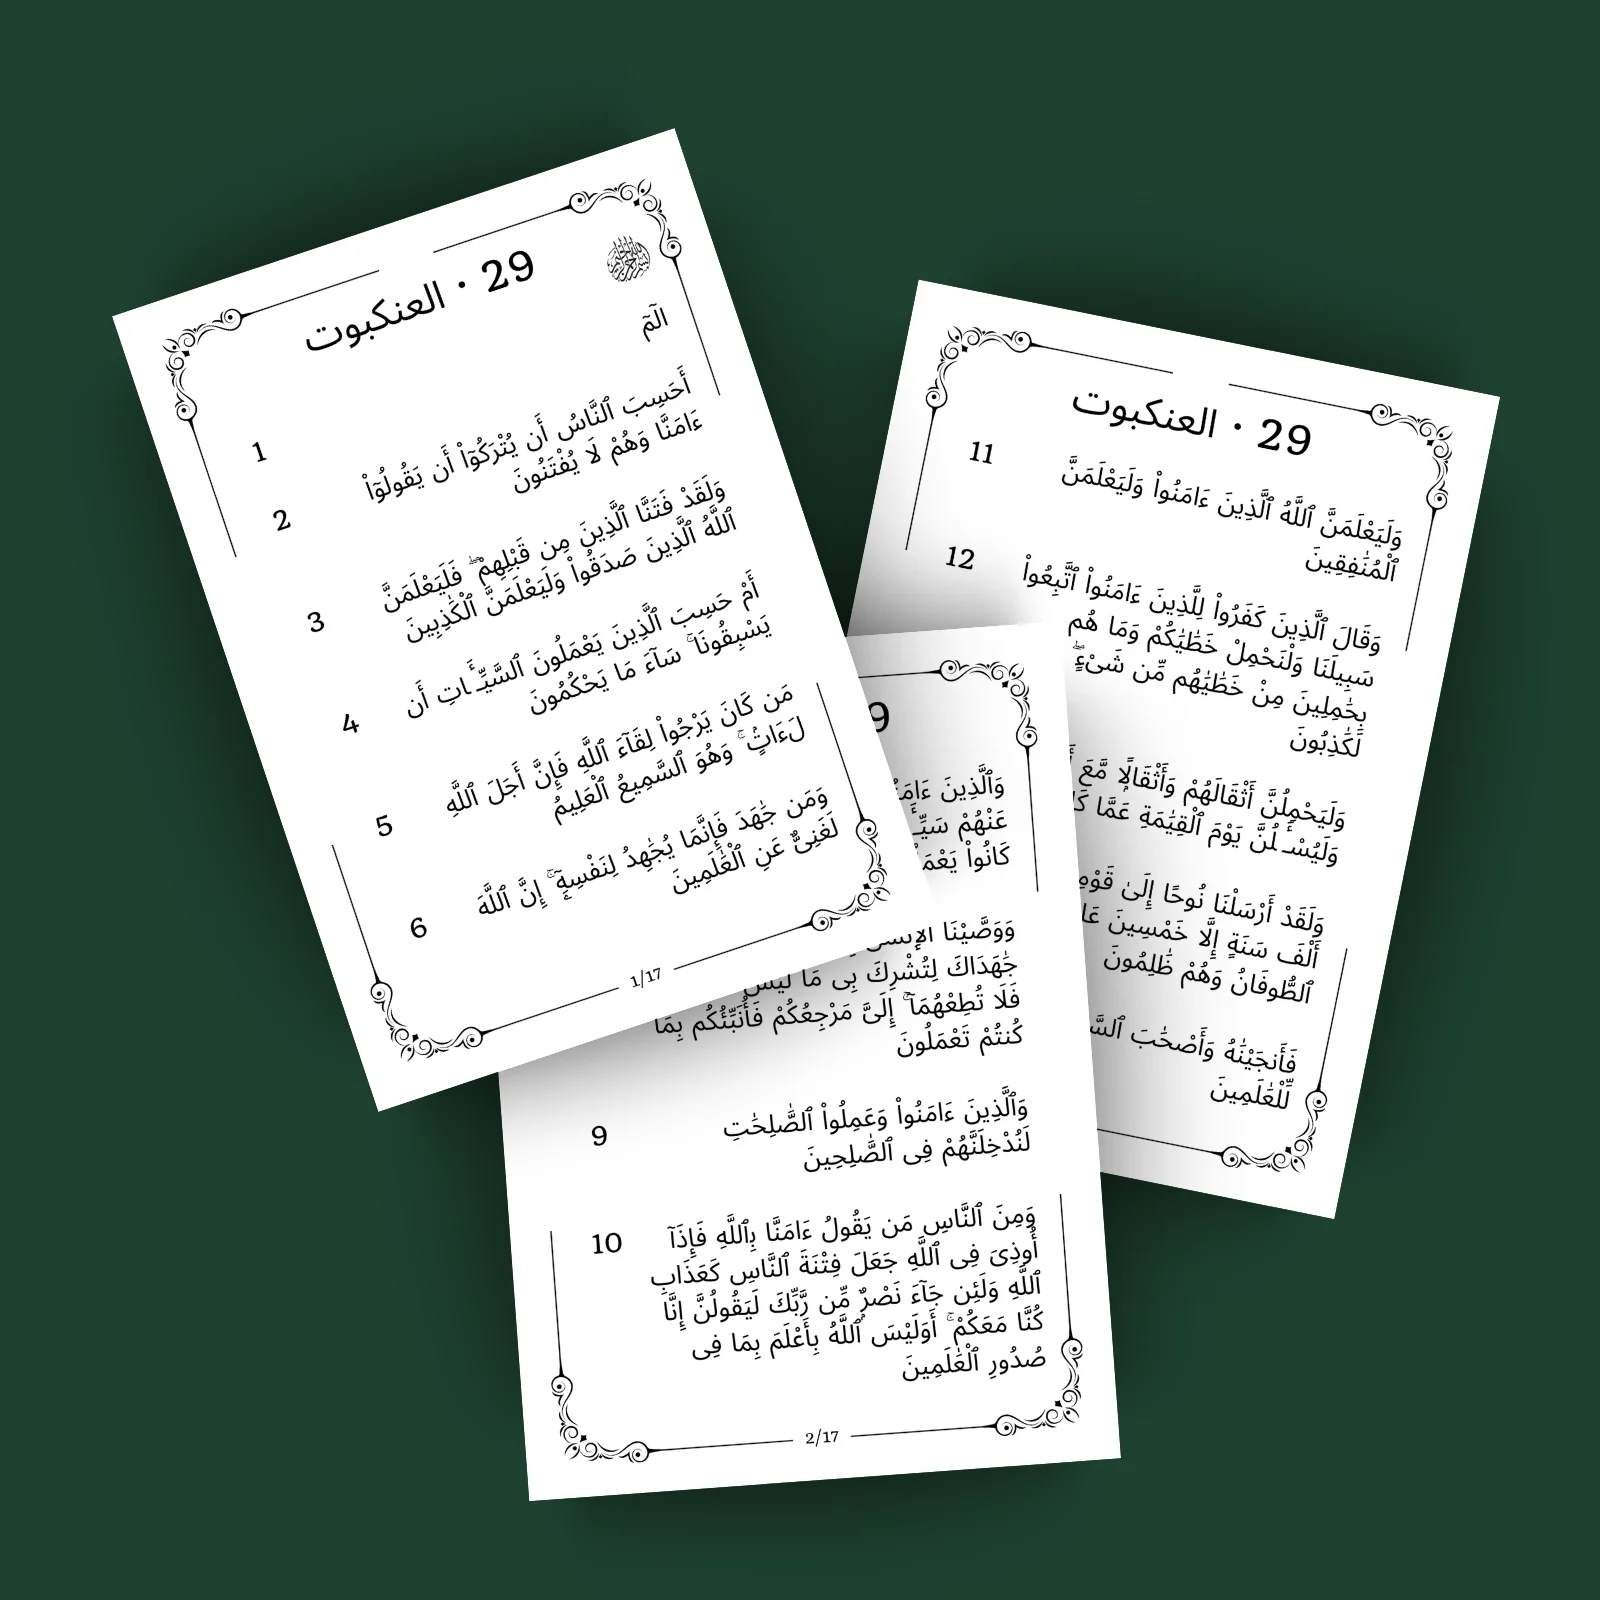 29 · العنكبوت
الٓمٓ
1
أَحَسِبَ ٱلنَّاسُ أَن يُتْرَكُوٓا۟ أَن يَقُولُوٓا۟
ءَامَنَّا وَهُمْ لَا يُفْتَنُونَ
2
وَلَقَدْ فَتَنَّا ٱلَّذِينَ مِن قَبْلِهِمْ ۖ فَلَيَعْلَمَنَّ
ٱللَّهُ ٱلَّذِينَ صَدَقُوا۟ وَلَيَعْلَمَنَّ ٱلْكَٰذِبِينَ
3
أَمْ حَسِبَ ٱلَّذِينَ يَعْمَلُونَ ٱلسَّيِّـَٔاتِ أَن
يَسْبِقُونَا ۚ سَآءَ مَا يَحْكُمُونَ
4
مَن كَانَ يَرْجُوا۟ لِقَآءَ ٱللَّهِ فَإِنَّ أَجَلَ ٱللَّهِ
لَـَٔاتٍ ۚ وَهُوَ ٱلسَّمِيعُ ٱلْعَلِيمُ
5
وَمَن جَٰهَدَ فَإِنَّمَا يُجَٰهِدُ لِنَفْسِهِۦٓ ۚ إِنَّ ٱللَّهَ
لَغَنِىٌّ عَنِ ٱلْعَٰلَمِينَ
6
1/17
9
وَٱلَّذِينَ
عَنْهُمْ
كَانُوا۟
وَوَصَّيْنَا
جَٰهَدَاكَ لِتُشْرِكَ بِى مَا لَيْسَ
فَلَا تُطِعْهُمَآ ۚ إِلَىَّ مَرْجِعُكُمْ فَأُنَبِّئُكُم بِمَا
كُنتُمْ تَعْمَلُونَ
9
وَٱلَّذِينَ ءَامَنُوا۟ وَعَمِلُوا۟ ٱلصَّٰلِحَٰتِ
لَنُدْخِلَنَّهُمْ فِى ٱلصَّٰلِحِينَ
10
وَمِنَ ٱلنَّاسِ مَن يَقُولُ ءَامَنَّا بِٱللَّهِ فَإِذَآ
أُوذِىَ فِى ٱللَّهِ جَعَلَ فِتْنَةَ ٱلنَّاسِ كَعَذَابِ
ٱللَّهِ وَلَئِن جَآءَ نَصْرٌ مِّن رَّبِّكَ لَيَقُولُنَّ إِنَّا
كُنَّا مَعَكُمْ ۚ أَوَلَيْسَ ٱللَّهُ بِأَعْلَمَ بِمَا فِى
صُدُورِ ٱلْعَٰلَمِينَ
2/17
29 · العنكبوت
11
وَلَيَعْلَمَنَّ ٱللَّهُ ٱلَّذِينَ ءَامَنُوا۟ وَلَيَعْلَمَنَّ
ٱلْمُنَٰفِقِينَ
12
وَقَالَ ٱلَّذِينَ كَفَرُوا۟ لِلَّذِينَ ءَامَنُوا۟ ٱتَّبِعُوا۟
سَبِيلَنَا وَلْنَحْمِلْ خَطَٰيَٰكُمْ وَمَا هُم
بِحَٰمِلِينَ مِنْ خَطَٰيَٰهُم مِّن شَىْءٍ ۖ
لَكَٰذِبُونَ
وَلَيَحْمِلُنَّ أَثْقَالَهُمْ وَأَثْقَالًا مَّعَ
وَلَيُسْـَٔلُنَّ يَوْمَ ٱلْقِيَٰمَةِ عَمَّا
وَلَقَدْ أَرْسَلْنَا نُوحًا إِلَىٰ
أَلْفَ سَنَةٍ إِلَّا خَمْسِينَ
ٱلطُّوفَانُ وَهُمْ ظَٰلِمُونَ
فَأَنجَيْنَٰهُ وَأَصْحَٰبَ
لِّلْعَٰلَمِينَ